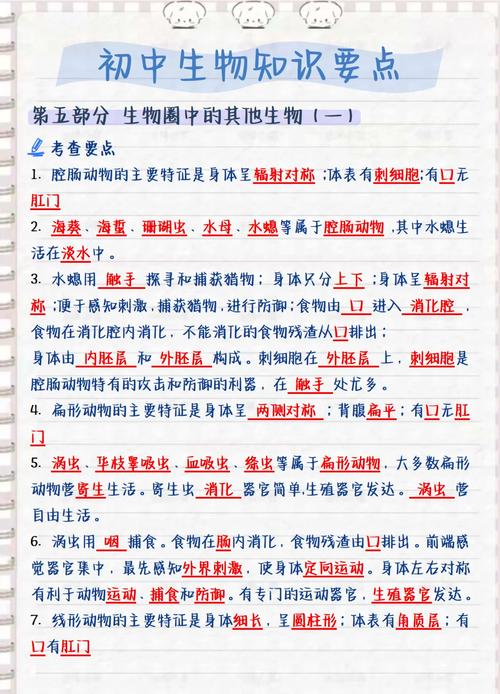 初中生物知识要点
第五部分 生物圈中的其他生物(一)
考查要点
1. 腔肠动物的主要特征是身体呈辐射对称;体表有刺细胞;有口无
肛门
2. 海葵、海蜇、珊瑚虫、水母、水螅等属于腔肠动物,其中水螅生
活在淡水中。
3. 水螅用 触手 探寻和捕获猎物;身体只分上下;身体呈辐射对
称;便于感知刺激,捕获猎物,进行防御;食物由 口 进入 消化腔,
食物在消化腔内消化,不能消化的食物残渣从口排出;
身体由 内胚层 和 外胚层 构成。刺细胞在 外胚层 上,刺细胞是
腔肠动物特有的攻击和防御的利器,在 触手 处尤多。
4. 扁形动物的主要特征是身体呈 两侧对称 ;背腹扁平;有口无肛
门
5. 涡虫、华枝睾吸虫、血吸虫、绦虫等属于扁形动物,大多数扁形
动物营寄生生活。寄生虫 消化 器官简单,生殖器官发达。 涡虫 营
自由生活。
6. 涡虫用 咽 捕食。食物在肠内消化,食物残渣由口排出。前端感
觉器官集中,最先感知外界刺激,使身体定向运动。身体左右对称
有利于动物运动、捕食和防御。有专门的运动器官,生殖器官发达。
7. 线形动物的主要特征是身体细长,呈圆柱形;体表有角质层;有
口有肛门